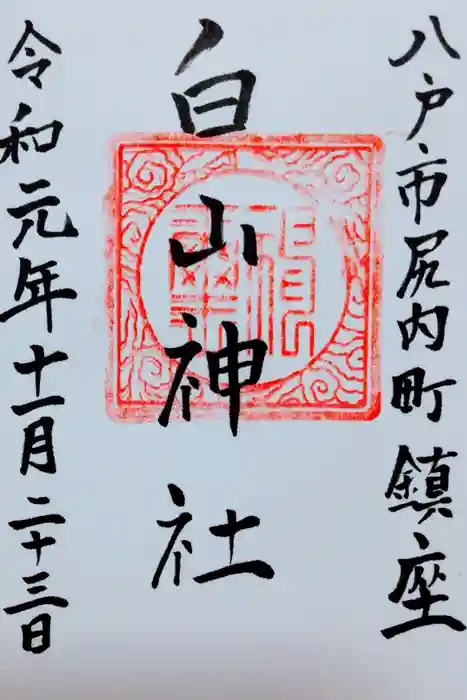 八戸市尻内町鎮座
白山神社
令和元年十一月二十三日